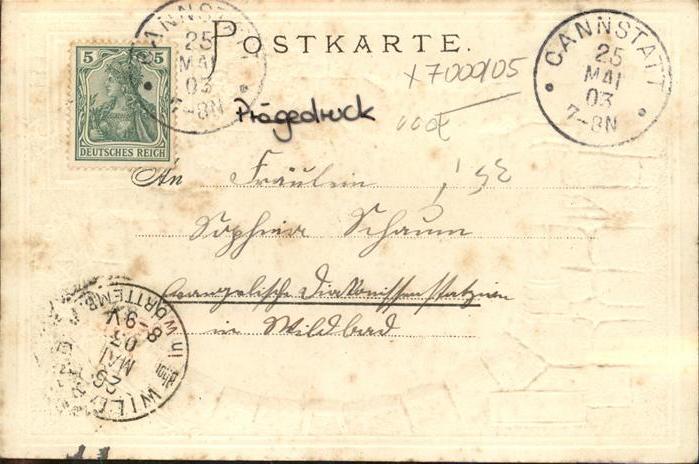 POSTKARTE.
5 5
DEUTSCHES REICH
CANNSTATT
25
MAI
03
7-8N
CANNSTATT
25
MAI
03
7-8N
x7000/05
Prägedruck
An Fräulein
Sophie Schaum
Evangelische Diakonissenstation
in Wildbad
WILDBAD
WÜRTTEMB
26
MAI
03
8-9V